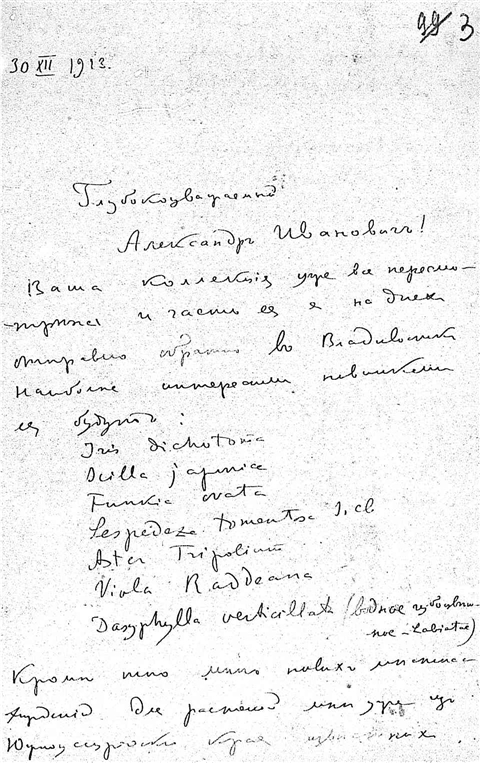 99 3
30 XII 1913.
Глубокоуважаемый
Александръ Ивановичъ!
Ваша коллекція уже вся пересмо-
-трѣна и часть ея я на дняхъ
отправлю обратно во Владивостокъ
Наиболѣе интересными новинками
ея будутъ:
Iris dichotoma
Scilla japonica
Funkia ovata
Lespedeza tomentosa S. et
Aster Tripolium
Viola Raddeana
Dasyphylla verticillata (водное губоцвѣт-
ное - Labiatae)
Кромѣ того много новыхъ мѣстона-
хожденій для растеній мнѣ уже изъ
Южноуссурійскаго края извѣстныхъ